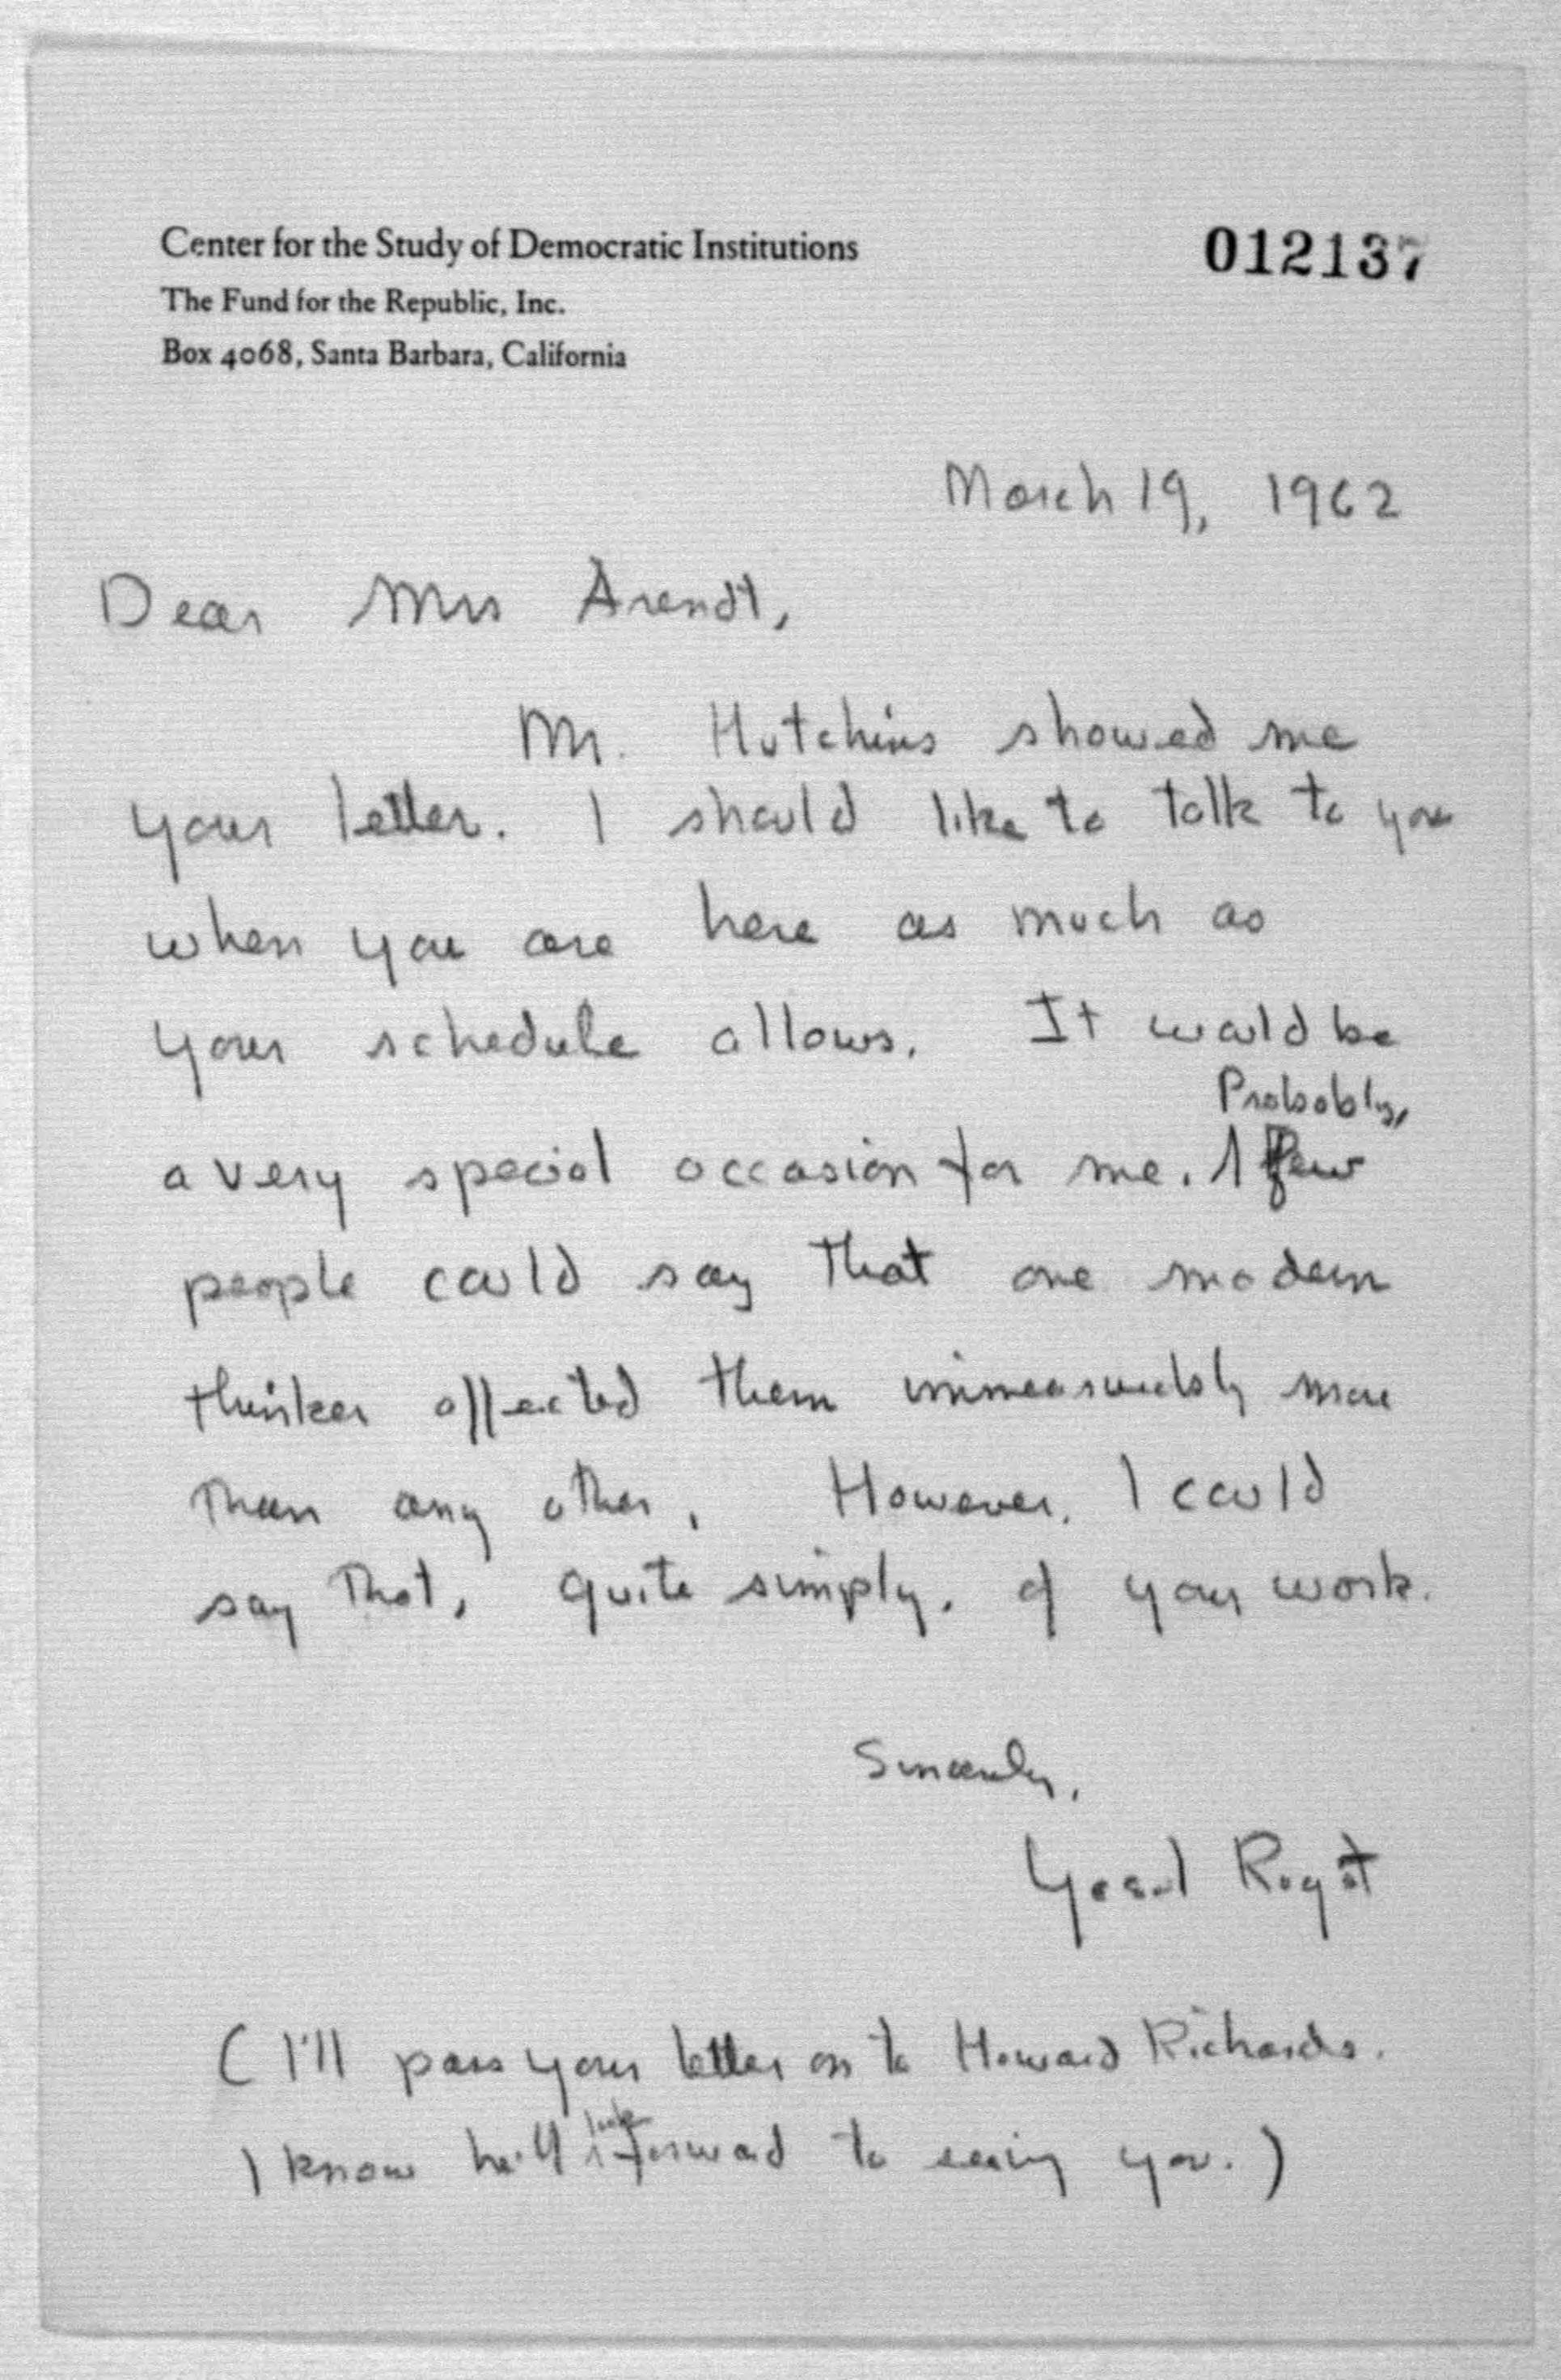 Center for the Study of Democratic Institutions
012137
The Fund for the Republic, Inc.
Box 4068, Santa Barbara, California
March 19, 1962
Dear Mrs Arendt,
Mr. Hutchins showed me
your letter. I should like to talk to you
when you are here as much as
your schedule allows. It would be
Probably,
a very special occasion for me. few
people could say that one modern
thinker affected them immeasurably more
than any other. However, I could
say that, quite simply, of your work.
Sincerely,
(I'll pass your letter on to Howard Richards.
look
I know he'll forward to seeing you.)